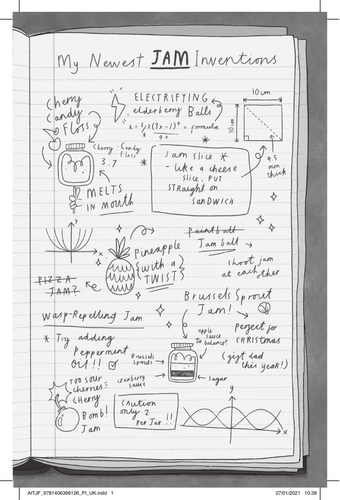 My Newest JAM Inventions
Cherry
Candy
Floss
ELECTRIFYING
elderberry Balls
= formula
10 cm
10 cm
4.5
mm
thick
Cherry: Candy
Floss
3.7
MELTS
IN MOUTH
Jam slice *
- Like a cheese
slice, PUT
STRAIGHT ON
SANDWICH
Paintball
Jam ball
shoot jam
at each other
x
Pineapple
(with a
TWIST)
PIZZA
JAM?
Brussels Sprout
Jam!
Perfect for
CHRISTMAS
(gift dad
this year!)
Wasp-Repelling Jam
* Try adding
Peppermint
Oil!!
apple
sauce
to balance?
Brussels
Sprouts
cranberry
sauce
sugar
TOO SOUR
cherries
CHERRY
Bomb!
Jam
CAUTION
only 2
Per Jar!!
y
x
AITJF_9781406396126_PI_UK.indd 1
27/01/2021 10:39